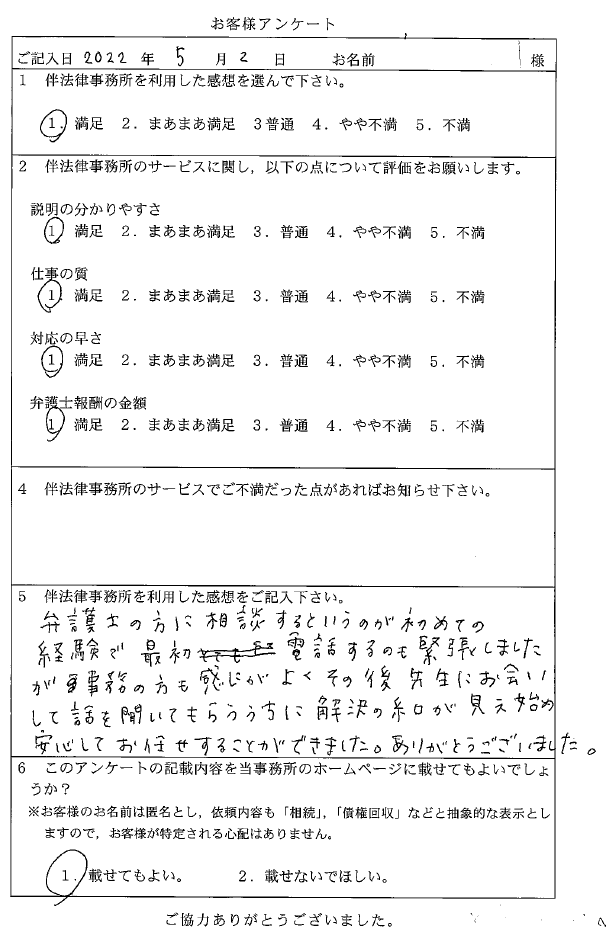 お客様アンケート
ご記入日 2022 年 5 月 2 日 お名前 様
1 伴法律事務所を利用した感想を選んで下さい。
1. 満足 2. まあまあ満足 3 普通 4. やや不満 5. 不満
2 伴法律事務所のサービスに関し,以下の点について評価をお願いします。
説明の分かりやすさ
1 満足 2. まあまあ満足 3. 普通 4. やや不満 5. 不満
仕事の質
1. 満足 2. まあまあ満足 3. 普通 4. やや不満 5. 不満
対応の早さ
1. 満足 2. まあまあ満足 3. 普通 4. やや不満 5. 不満
弁護士報酬の金額
1 満足 2. まあまあ満足 3. 普通 4. やや不満 5. 不満
4 伴法律事務所のサービスでご不満だった点があればお知らせ下さい。
5 伴法律事務所を利用した感想をご記入下さい。
弁護士の方に相談するというのが初めての
経験で最初電話するのも緊張しました
が事務の方も感じがよくその後先生にお会い
して話を聞いてもらううちに解決の糸口が見え始め
安心してお任せすることができました。ありがとうございました。
6 このアンケートの記載内容を当事務所のホームページに載せてもよいでしょ
うか?
※お客様のお名前は匿名とし,依頼内容も「相続」,「債権回収」などと抽象的な表示とし
ますので,お客様が特定される心配はありません。
1. 載せてもよい。 2. 載せないでほしい。
ご協力ありがとうございました。